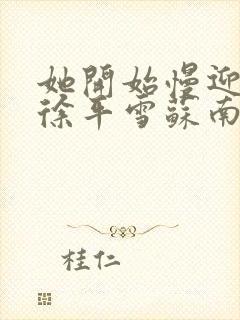 她開始慢迎
徐平雪蘇南
桂仁